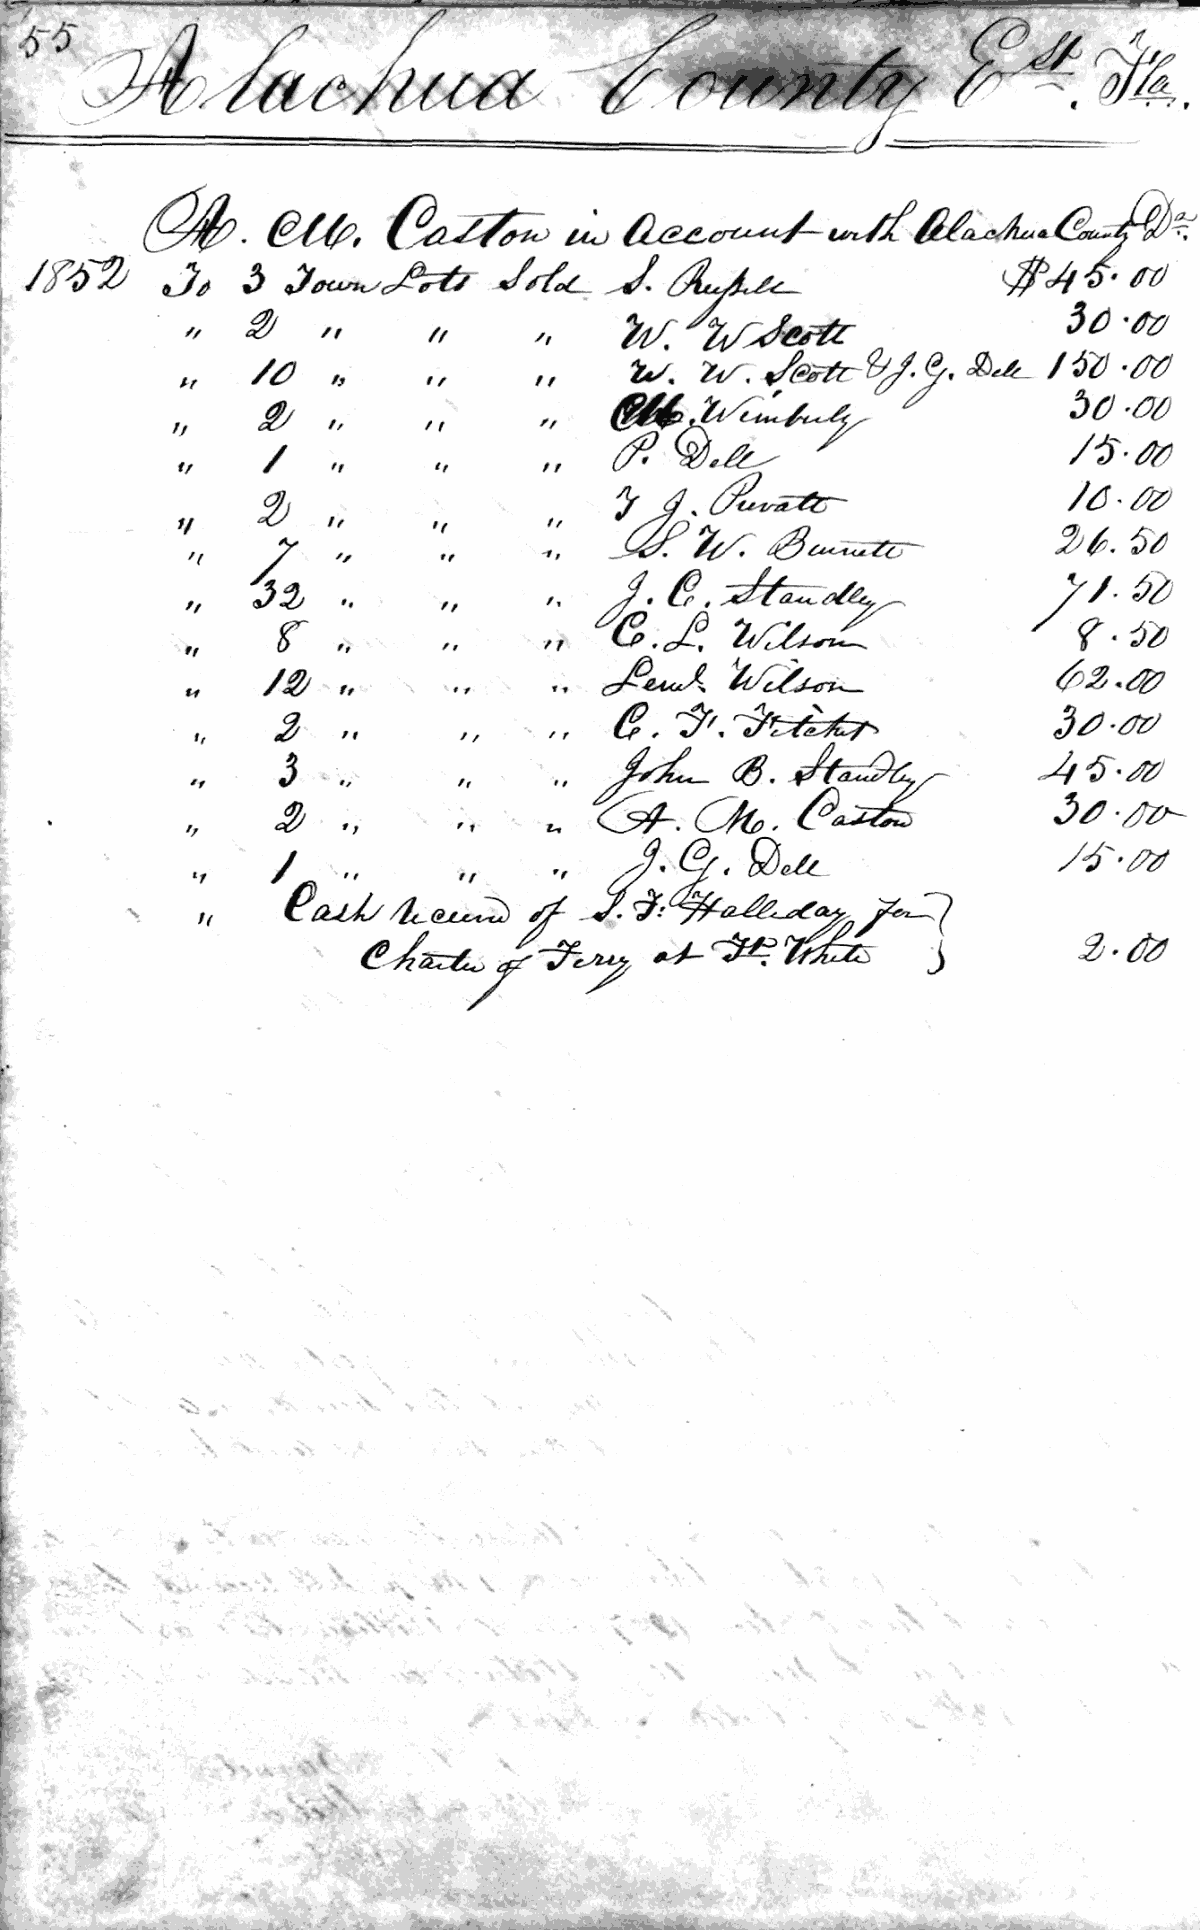 55
Alachua County Est. Fla.
A. M. Caston in Account with Alachua County Dr.
1852 To 3 Town Lots Sold S. Russell $45.00
" 2 " " " W. W Scott 30.00
" 10 " " " W. W. Scott & J. G. Dell 150.00
" 2 " " " M. Wimberly 30.00
" 1 " " " P. Dell 15.00
" 2 " " " T J. Prevatt 10.00
" 7 " " " S. W. Burnett 26.50
" 32 " " " J. C. Standley 71.50
" 8 " " " C. L. Wilson 8.50
" 12 " " " Leml. Wilson 62.00
" 2 " " " C. F. Fitchet 30.00
" 3 " " " John B. Standley 45.00
" 2 " " " A. M. Caston 30.00
" 1 " " " J. G. Dell 15.00
" Cash Receivd of S. F. Halliday for }
Charter of Ferry at Ft. White } 2.00